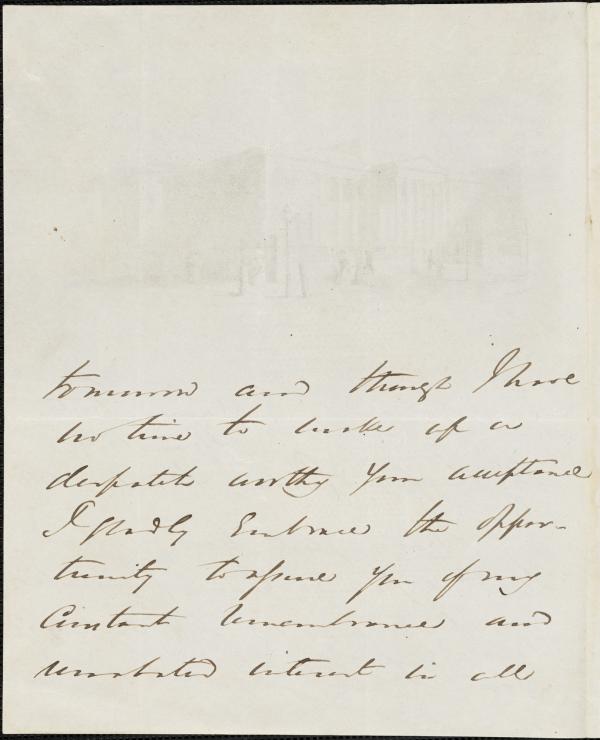 tomorrow and though I have
no time to make up a
despatch worthy your acceptance
I gladly embrace the oppor-
tunity to assure you of my
Constant remembrance and
unabated interest in all